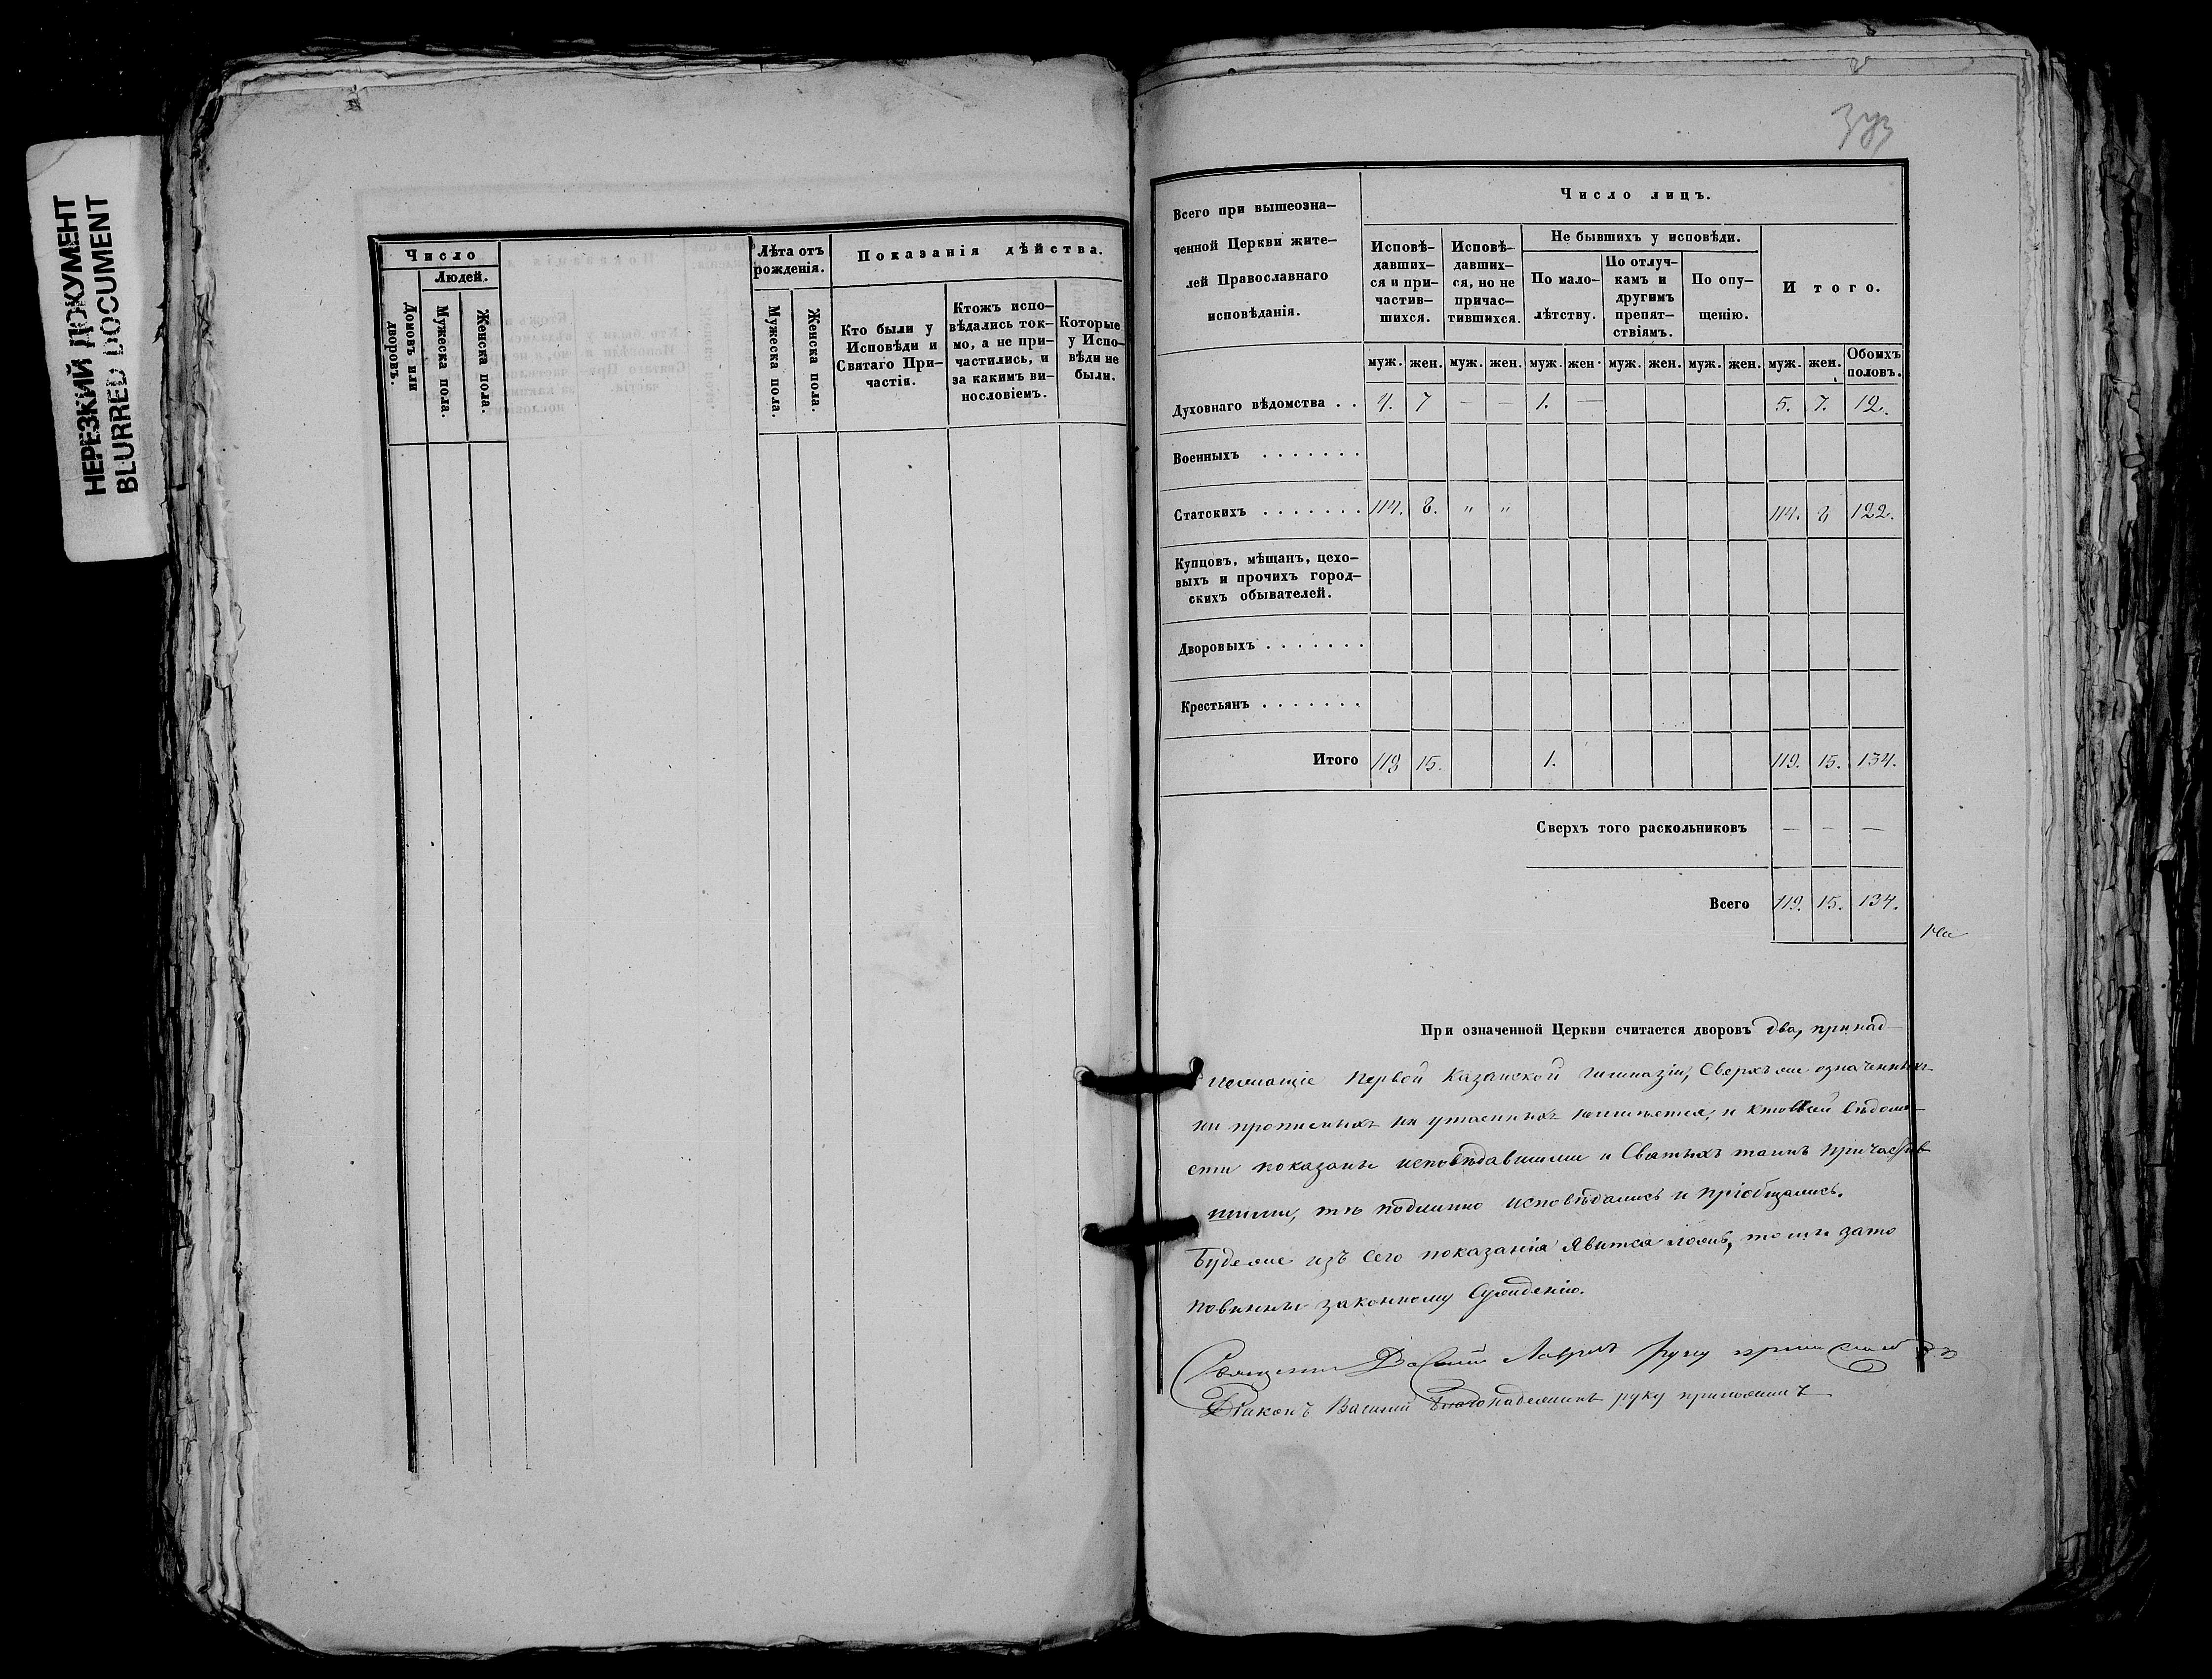 НЕРЕЗКИЙ ДОКУМЕНТ
BLURRED DOCUMENT
Число
Людей.
Домовъ или дворовъ.
Мужеска пола.
Женска пола.
Лѣта отъ рожденія.
Мужеска пола.
Женска пола.
Показанія дѣйства.
Кто были у
Исповѣди и
Святаго При-
частія.
Ктожъ испо-
вѣдались ток-
мо, а не при-
частились, и
за какимъ ви-
нословіемъ.
Которые
у Испо-
вѣди не
были.
Всего при вышеозна-
ченной Церкви жите-
лей Православнаго
исповѣданія.
Число лицъ.
Исповѣ-
давших-
ся и при-
частив-
шихся.
Исповѣ-
давших-
ся, но не
причас-
тившихся.
Не бывшихъ у исповѣди.
По мало-
лѣтству.
По отлуч-
камъ и
другимъ
препят-
ствіямъ.
По опу-
щенію.
Итого.
муж. жен. муж. жен. муж. жен. муж. жен. муж. жен. муж. жен. Обоихъ половъ.
Духовнаго вѣдомства . . 4. 7 — — 1. — 5. 7. 12.
Военныхъ . . . . . . .
Статскихъ . . . . . . . 114. 8. " " 114. 8 122.
Купцовъ, мѣщанъ, цехо-
выхъ и прочихъ город-
скихъ обывателей.
Дворовыхъ . . . . . . .
Крестьянъ . . . . . . .
Итого 118 15. 1. 119. 15. 134.
Сверхъ того раскольниковъ — — —
Всего 119. 15. 134.
При означенной Церкви считается дворовъ два, принад-
лежащіе Первой Казанской гимназіи, Сверхъ же означенныхъ
ни прописныхъ ни утаенныхъ неимѣется, и кто въ сей вѣдомо-
сти показаны исповѣдавшими и Святыхъ таинъ причастив-
шими, тѣ подлинно исповѣдались и пріобщались.
Буде же изъ сего показанія явится ложь, то мы за то
повинны законному сужденію.
Священн Василій руку приложилъ
Діаконъ Василій Благонадеждинъ руку приложилъ